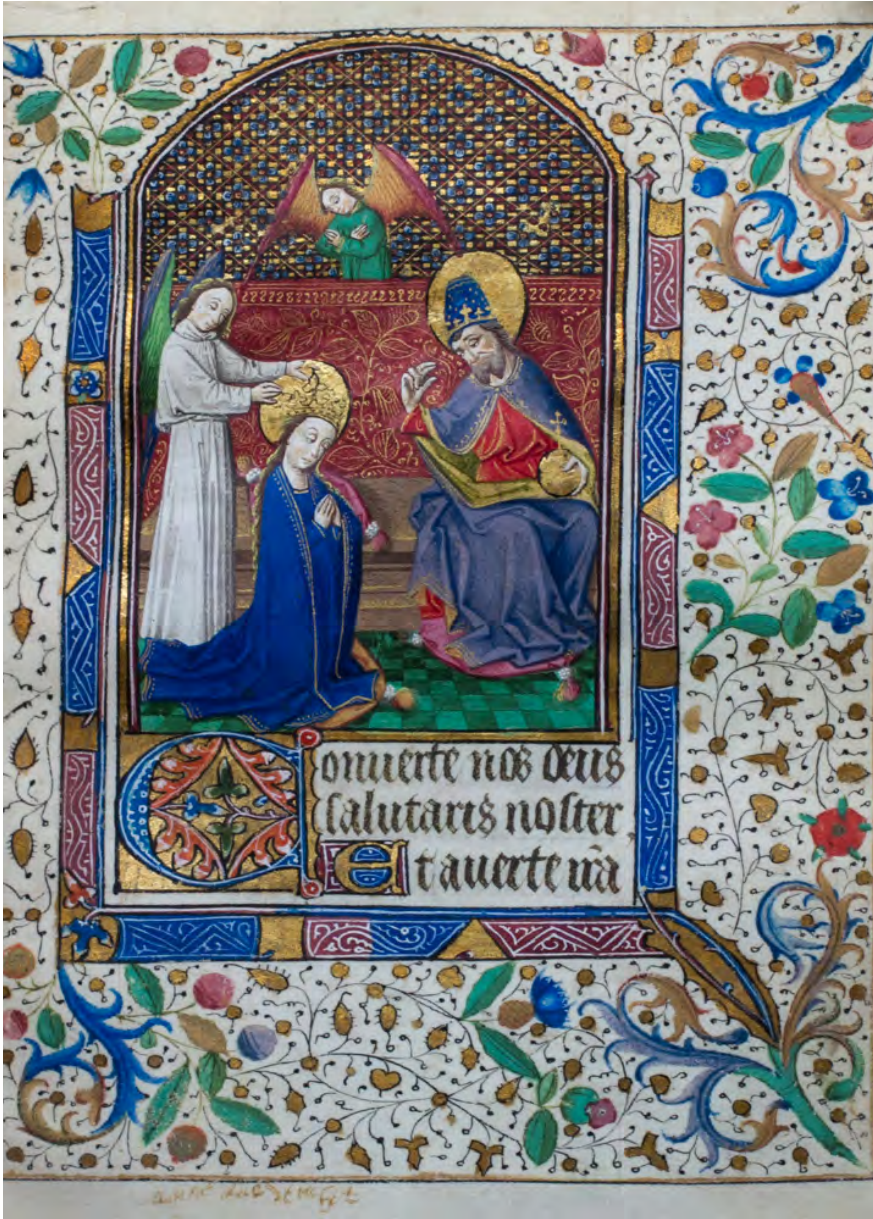 Conuerte nos deus
salutaris noster
Et auerte ira